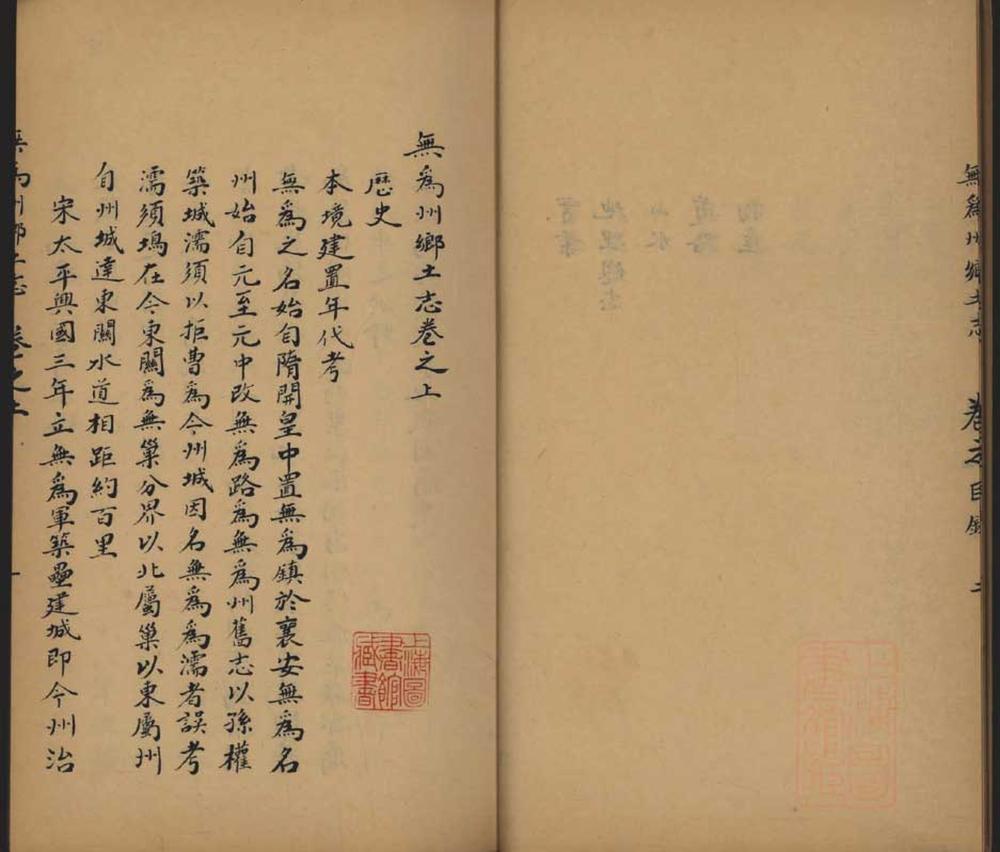 無爲州鄉土志 卷之目錄 二
物產
道路
山水
地理總志
無爲州鄉土志卷之上
歷史
本境建置年代考
無爲之名始自隋開皇中置無爲鎮於襄安無爲名
州始自元至元中改無爲路爲無爲州舊志以孫權
築城濡須以拒曹爲今州城因名無爲爲濡者誤考
濡須塢在今東關爲無巢分界以北屬巢以東屬州
自州城達東關水道相距約百里
宋太平興國三年立無爲軍築壘建城即今州治
無爲州鄉土志 卷之上 一
上海圖書館藏書